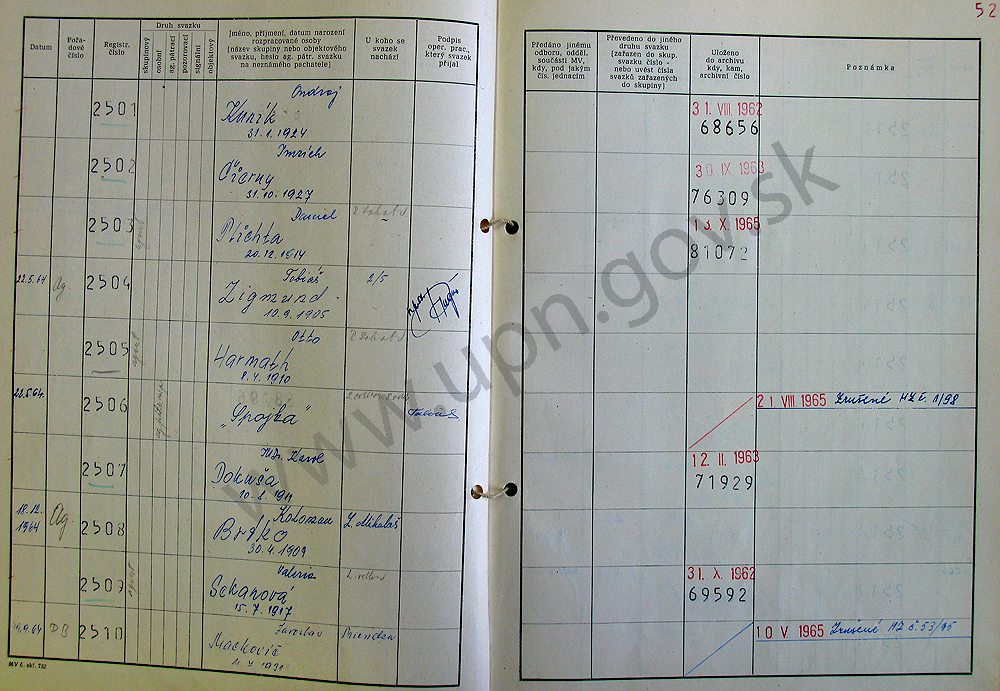 52
Datum
Pořa-
dové
číslo
Registr.
číslo
Druh svazku
skupinový
osobní
ag. pátrací
pozorovací
signální
objektový
Jméno, příjmení, datum narození
rozpracované osoby
(název skupiny nebo objektového
svazku, heslo ag. pátr. svazku
na neznámého pachatele)
U koho se
svazek
nachází
Podpis
oper. prac.,
který svazek
přijal
Předáno jinému
odboru, odděl.
součásti MV,
kdy, pod jakým
čís. jednacím
Převedeno do jiného
druhu svazku
(zařazen do skup.
svazku číslo -
nebo uvést čísla
svazků zařazených
do skupiny)
Uloženo
do archivu
kdy, kam,
archivní číslo
Poznámka
Ondrej
2501 Kunik 31. VIII. 1962
31.1.1924 68656
Imrich
2502 Čierny 30. IX. 1963
31.10.1927 76309
Daniel
2503 agent Plichta 13. X. 1965
20.12.1914 81072
Tobiáš
22.5.64 Ag. 2504 Zigmund 2/5
10.9.1905
Otto
2505 agent Harmath
8.4.1910
22.5.64. 2506 „Spojka" 21. VIII. 1965 Zrušené MZ č. 1/98
Karol
2507 Dokuša 12. II. 1963
71929
18.12.
1964 Ag 2508 Koloman
Briško L. Mikuláš
30.4.1909
Valeria
2509 agent Sekanová 31. X. 1962
15.7.1917 69592
Jaroslav
DB 2510 Mackovič Briendza 10 V. 1965 Zrušené MZ č 53/95
1931
MV č. skl. 782
www.upn.gov.sk